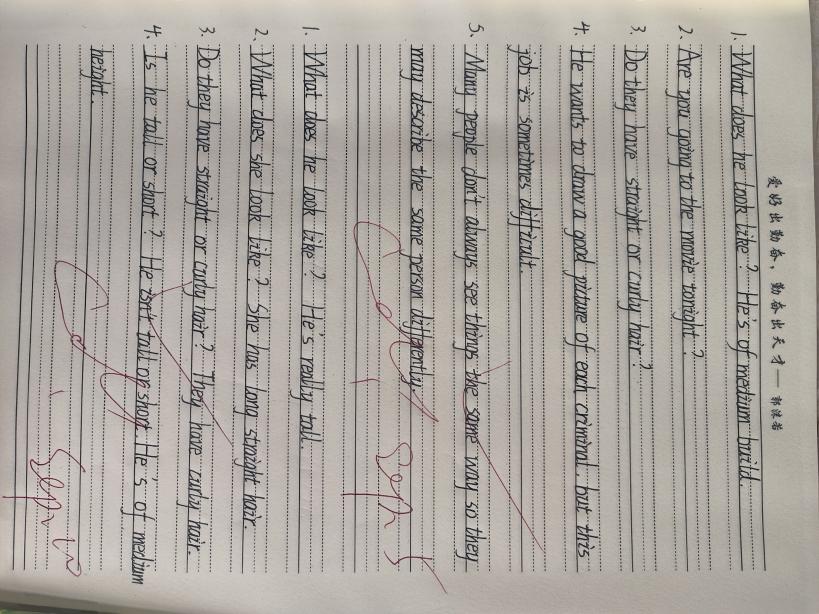 爱好出勤奋，勤奋出天才——郭沫若
1. What does he look like? He's of medium build.
2. Are you going to the movie tonight?
3. Do they have straight or curly hair?
4. He wants to draw a good picture of each criminal, but this
job is sometimes difficult.
5. Many people don't always see things the same way so they
may describe the same person differently.
1. What does he look like? He's really tall.
2. What does she look like? She has long straight hair.
3. Do they have straight or curly hair? They have curly hair.
4. Is he tall or short? He isn't tall or short. He's of medium
height.